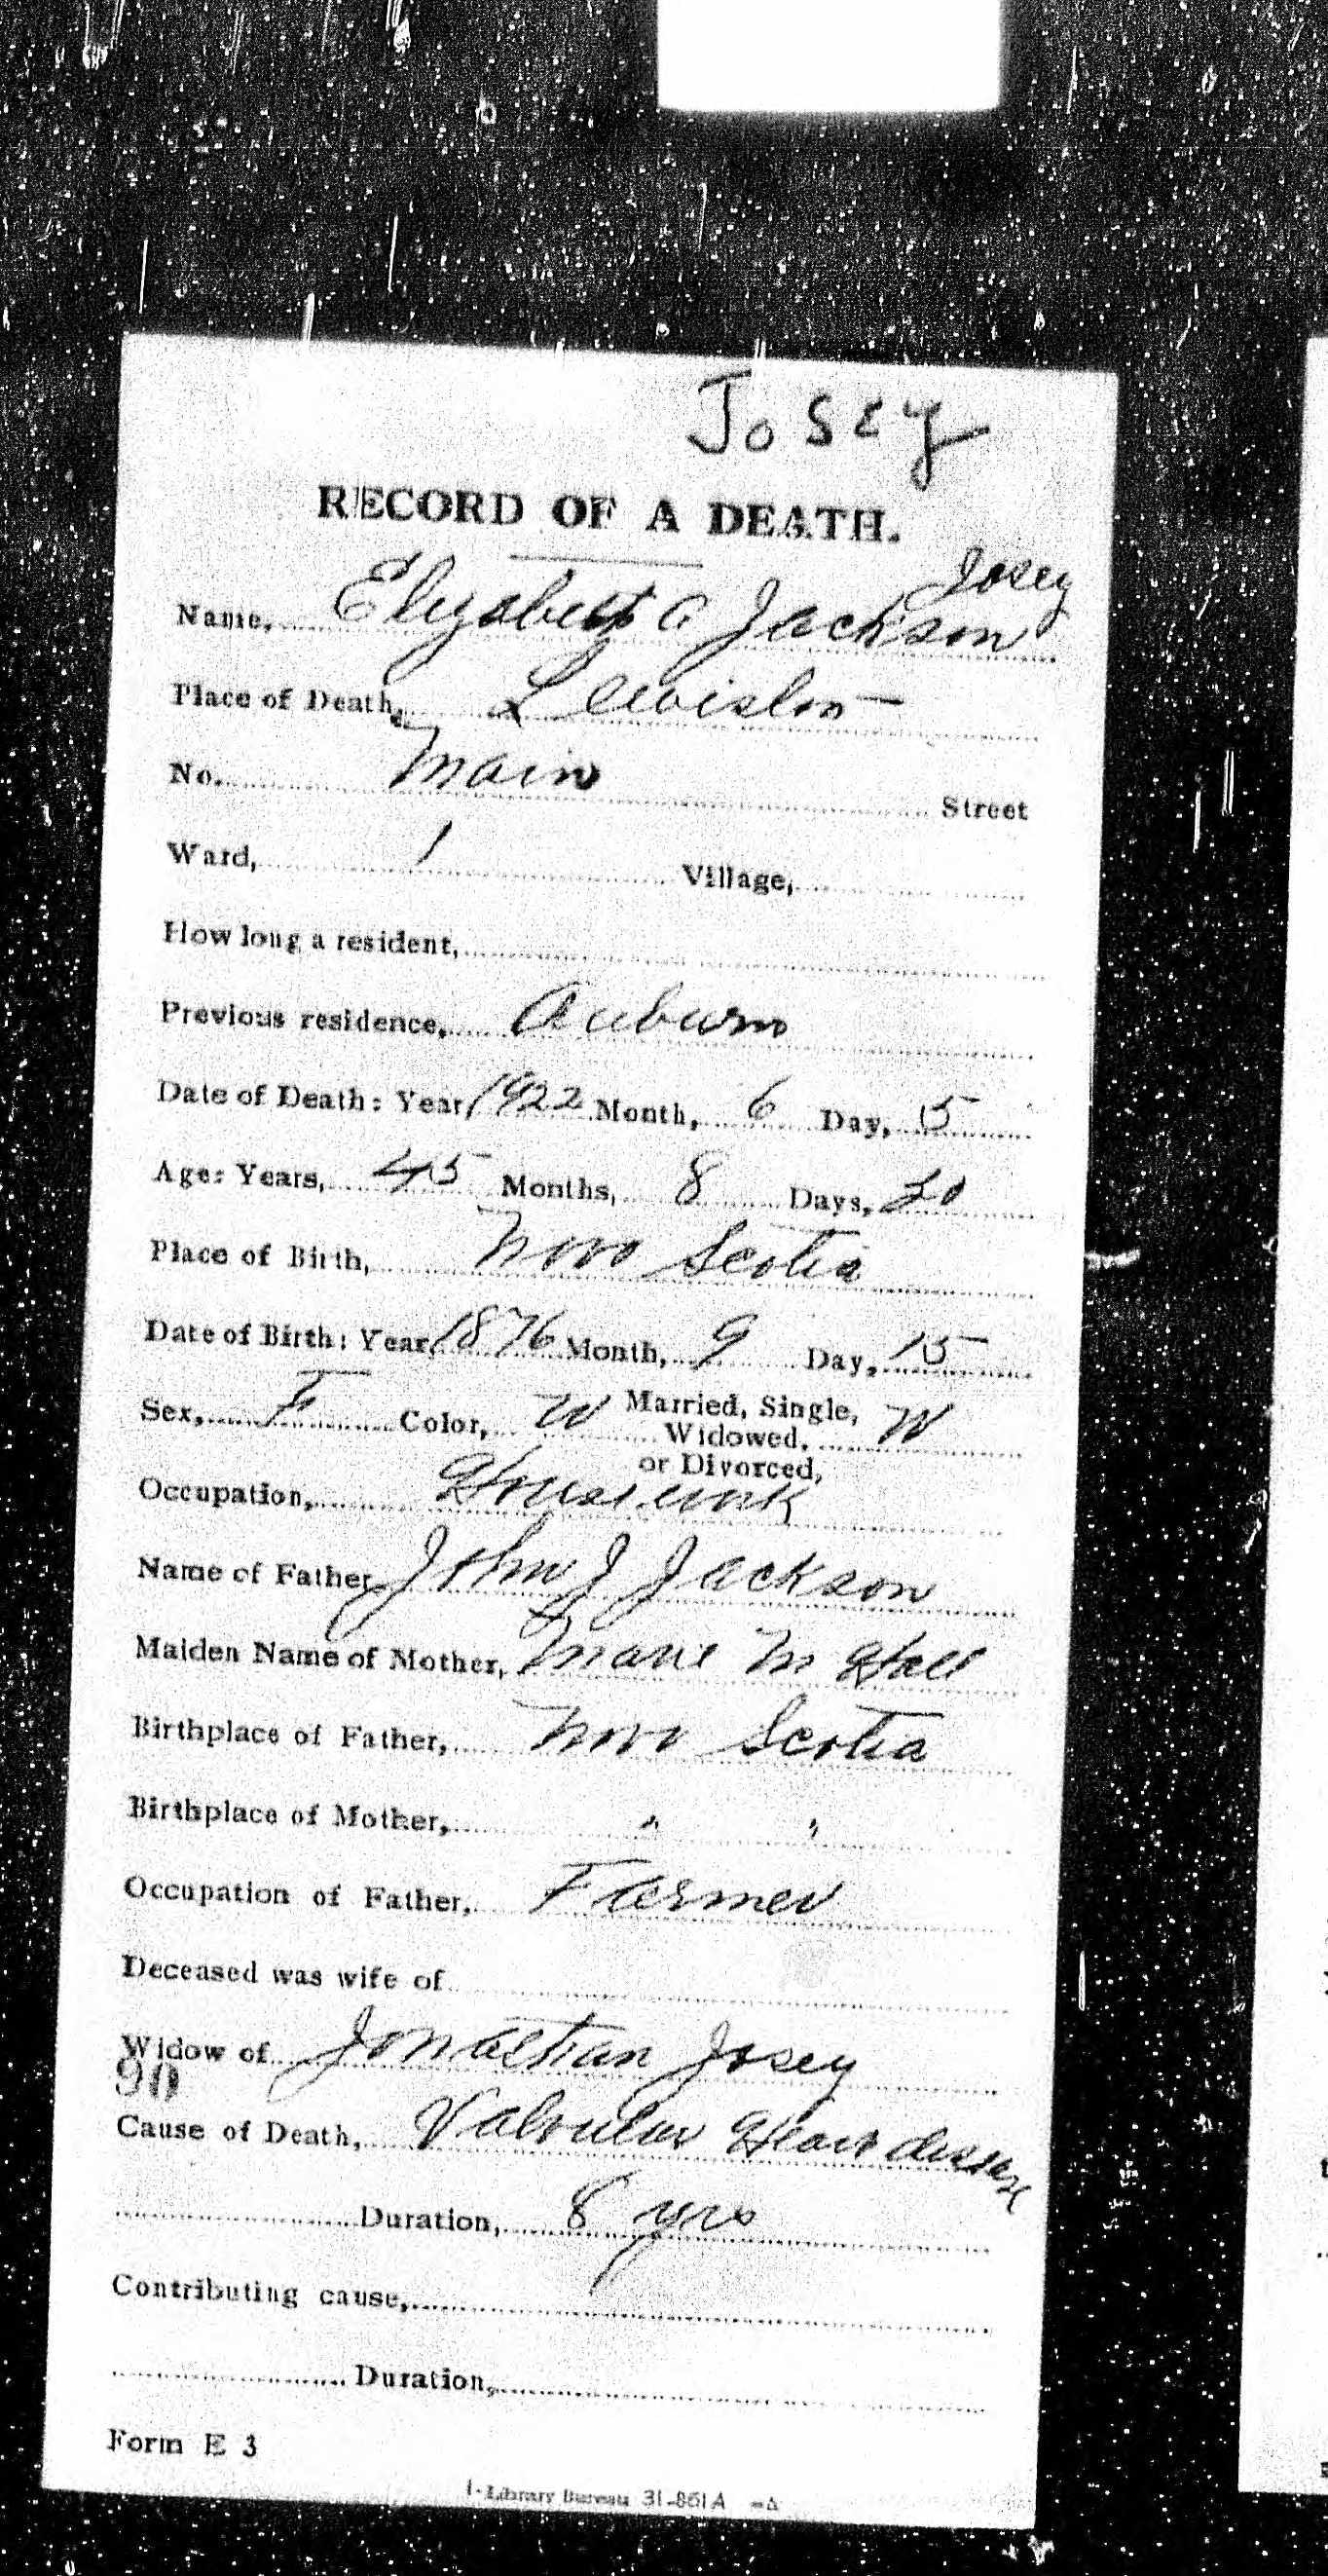 Josey
RECORD OF A DEATH.
Josey
Name, Elizabeth A Jackson
Place of Death, Lewiston
No. Main Street
Ward, 1 Village,
How long a resident,
Previous residence, Auburn
Date of Death: Year, 1922 Month, 6 Day, 15
Age: Years, 45 Months, 8 Days,
Place of Birth, Nova Scotia
Date of Birth: Year, 1876 Month, 9 Day, 15
Sex, F Color, W Married, Single, Widowed, or Divorced, W
Occupation, Housework
Name of Father, John J Jackson
Maiden Name of Mother, Marie M Hall
Birthplace of Father, Nova Scotia
Birthplace of Mother, " "
Occupation of Father, Farmer
Deceased was wife of
Widow of Jonathan Josey
90
Cause of Death, Valvular Heart disease
Duration, 8 yrs
Contributing cause,
Duration,
Form E 3
Library Bureau 31-861A